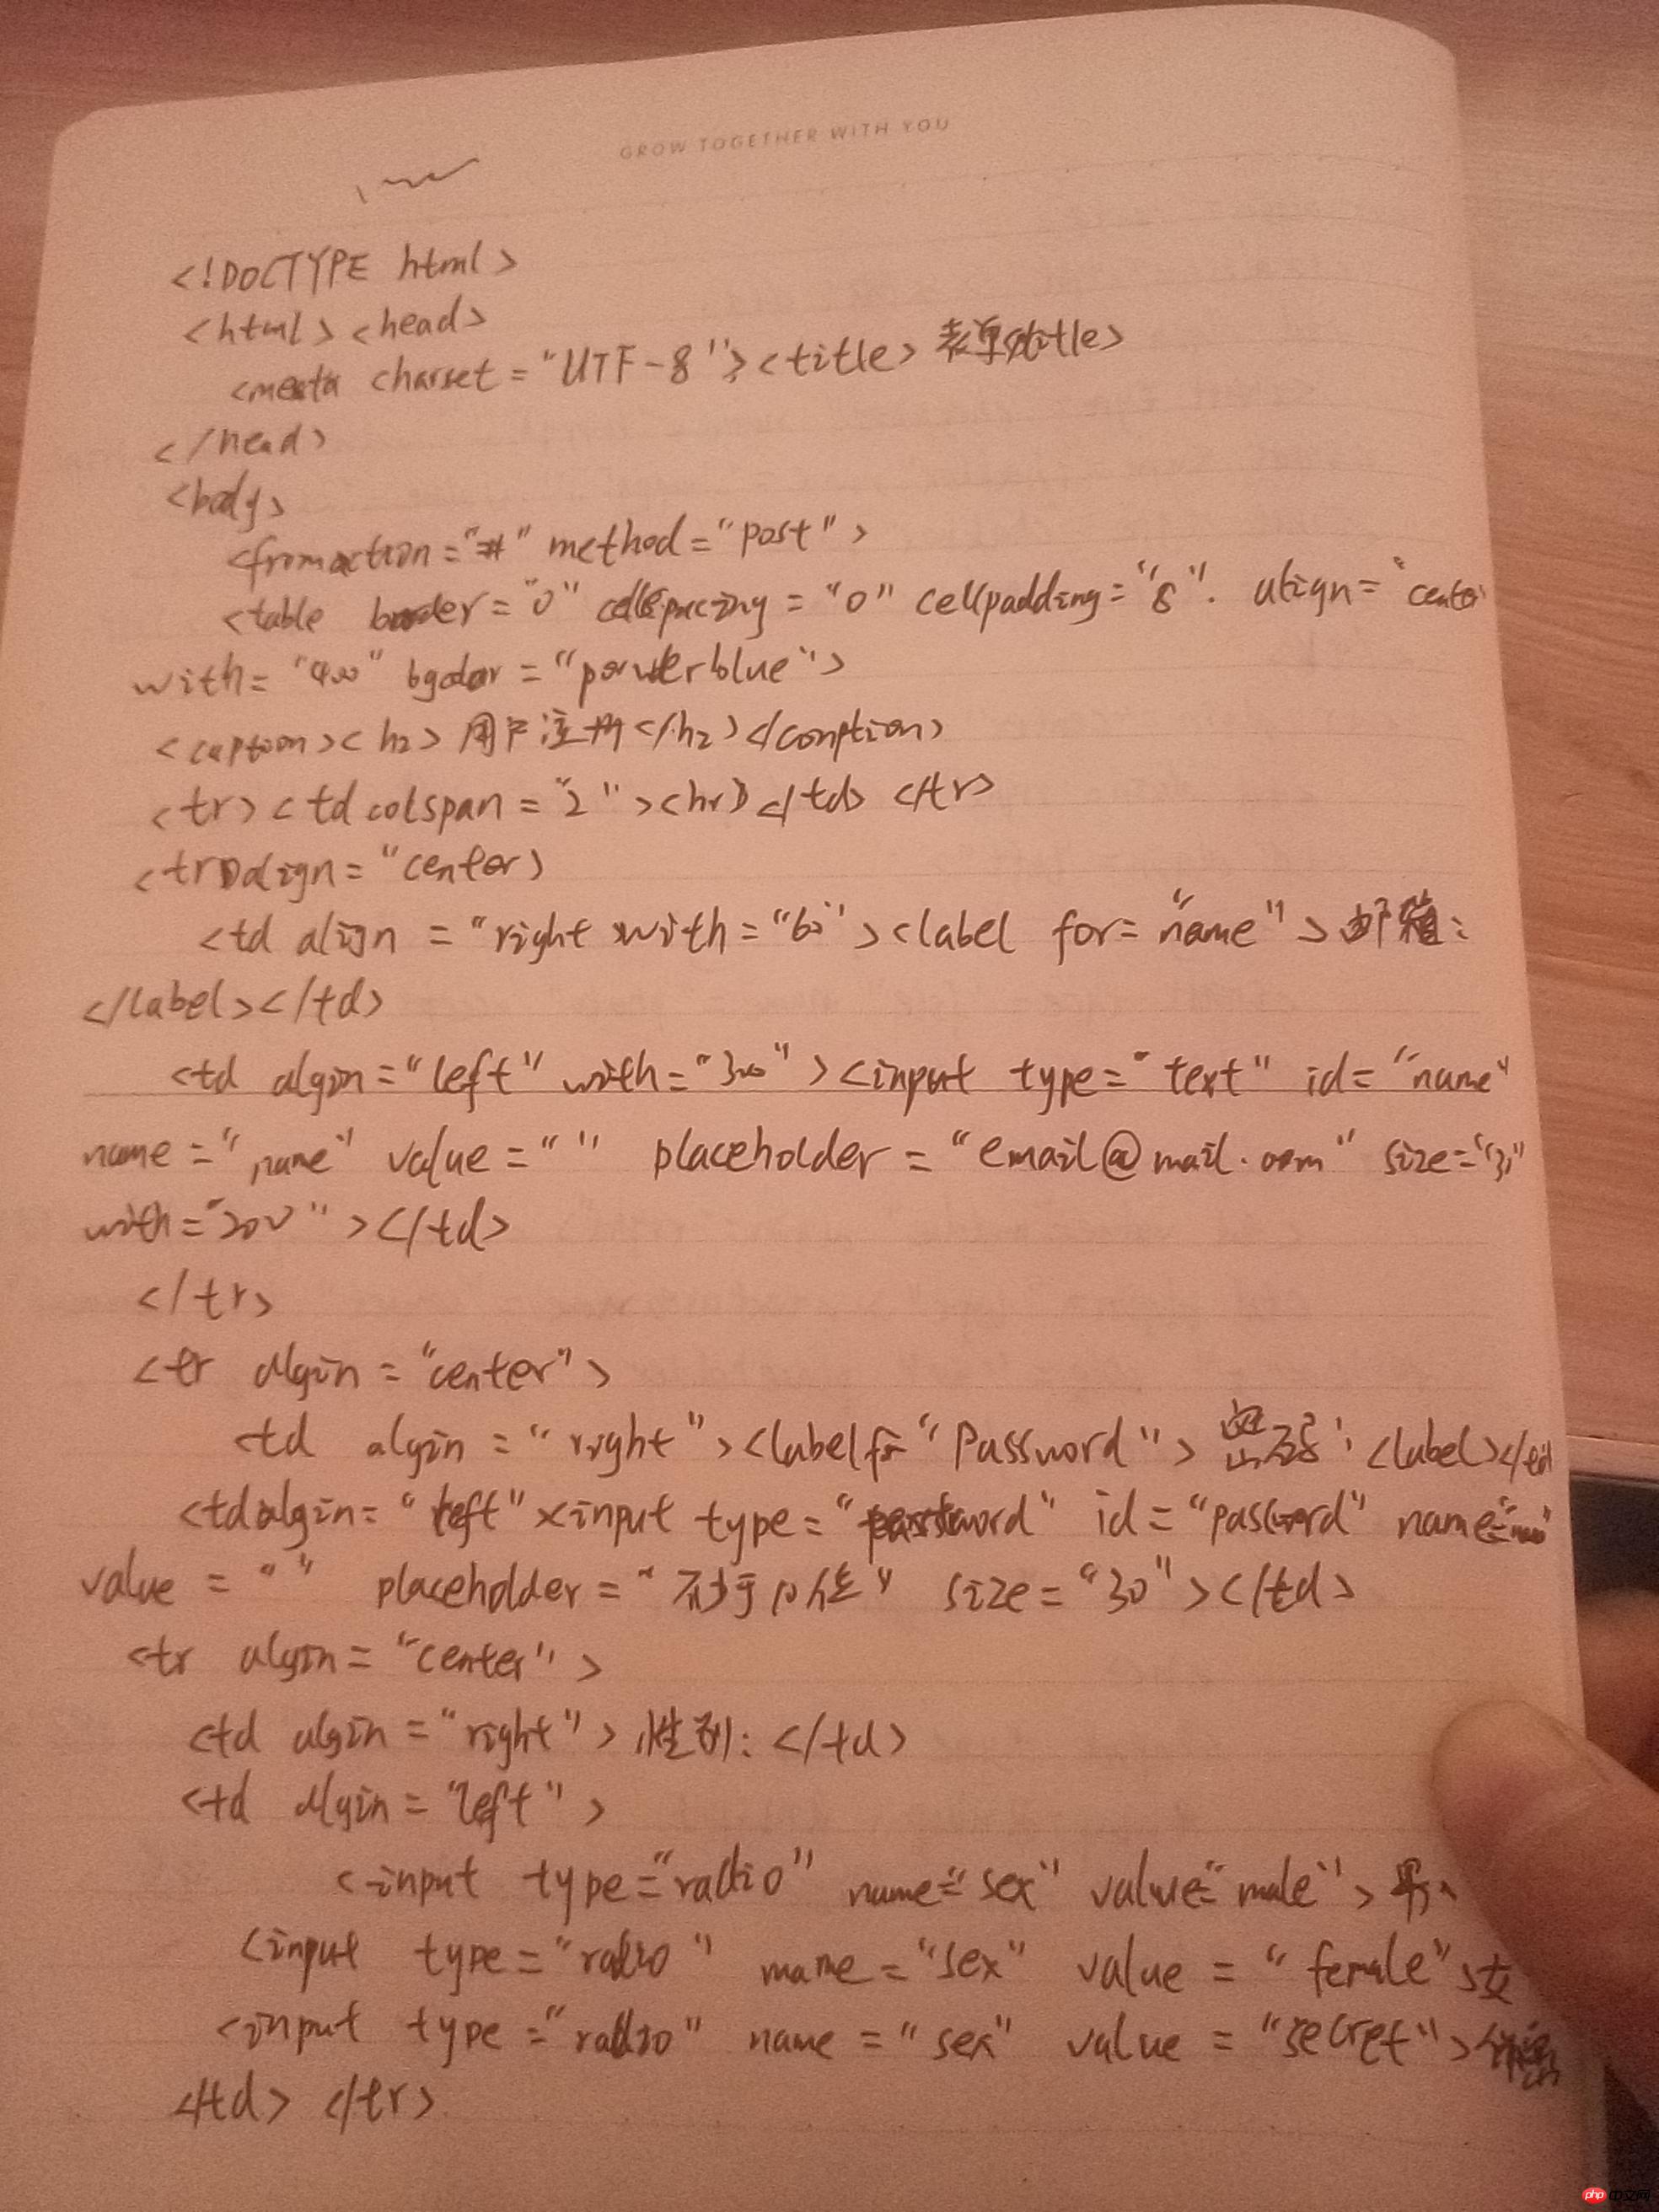 GROW TOGETHER WITH YOU
<!DOCTYPE html>
<html><head>
<meata charset="UTF-8"><title>表单</title>
</head>
<body>
<fromaction="#" method="post">
<table border="0" cellspacing="0" cellpadding="8" align="center
with="400" bgcolor="powderblue">
<caption><h2>用户注册</h2></conption>
<tr><td colspan="2"><hr></td></tr>
<tr align="center>
<td align="right with="60"><label for="name">邮箱:
</label></td>
<td algin="left" with="300"><input type="text" id="name"
name="name" value="" placeholder="email@mail.com" size="30
with="200"></td>
</tr>
<tr algin="center">
<td algin="right"><label for "Password">密码:<label></td
<td algin="left"><input type="password" id="password" name=
value="" placeholder="不少于10位" size="30"></td>
<tr algin="center">
<td algin="right">性别:</td>
<td algin="left">
<input type="radio" name="sex" value="male">男
<input type="radio" name="sex" value="female">女
<input type="radio" name="sex" value="secret">保密
</td></tr>
php 中文网